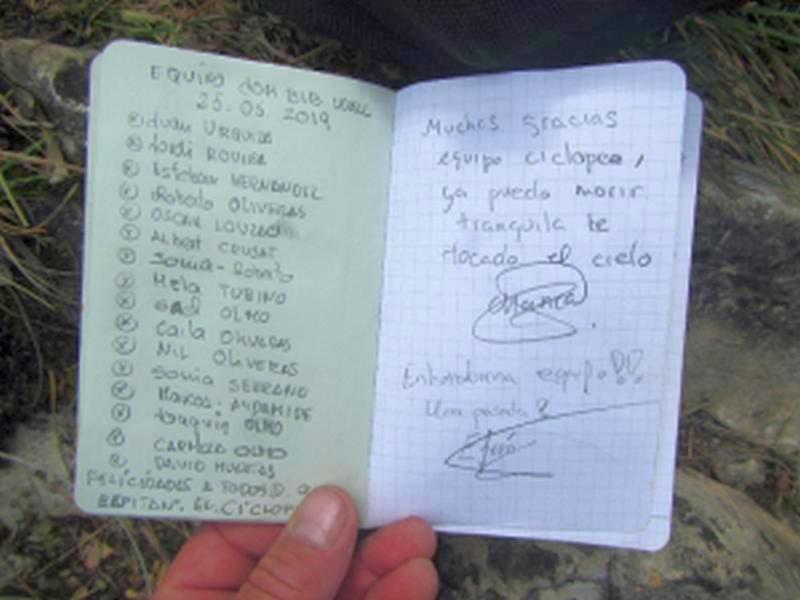 EQUIPO
25.05.2019
Juan URQUIZA
Jordi ROVIRA
Esteban HERNANDEZ
Roberto OLIVERAS
OSCAR
Albert CRUSAT
Sonia
Mela TUBINO
OLMO
Carla OLIVERAS
NIL OLIVERAS
Sonia SERRANO
Marcos
Joaquin OLMO
CARMELO OLMO
DAVID
FELICIDADES A TODOS
EL CICLOP
Muchas gracias
equipo ciclopeo,
ya puedo morir
tranquila he
tocado el cielo
Blanca
Enhorabuena equipo!!
Una pasada